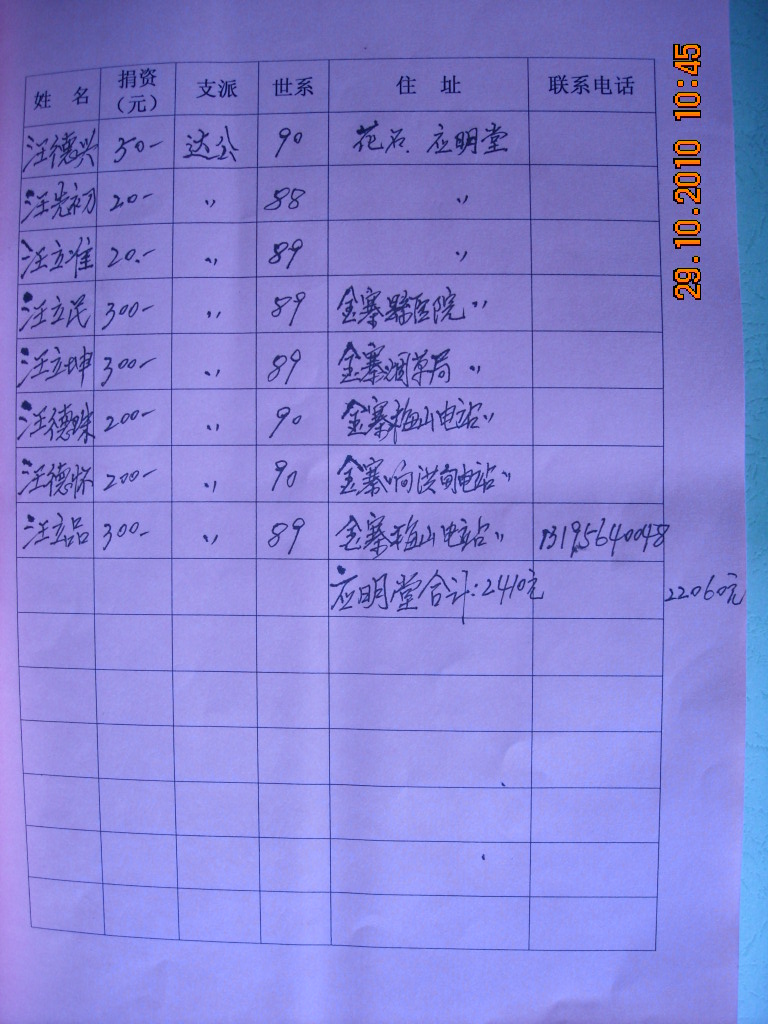 29.10.2010 10:45
姓 名 捐资(元) 支派 世系 住 址 联系电话
汪德兴 50- 达公 90 花石、应明堂
汪先初 20- 〃 88 〃
汪立准 20.- 〃 89 〃
汪立民 300- 〃 89 金寨县医院 〃
汪立坤 300- 〃 89 金寨烟草局 〃
汪德 200- 〃 90 金寨梅山电站〃
汪德怀 200- 〃 90 金寨响洪甸电站〃
汪立品 300- 〃 89 金寨梅山电站〃 13195640048
应明堂合计:2410元 22060元